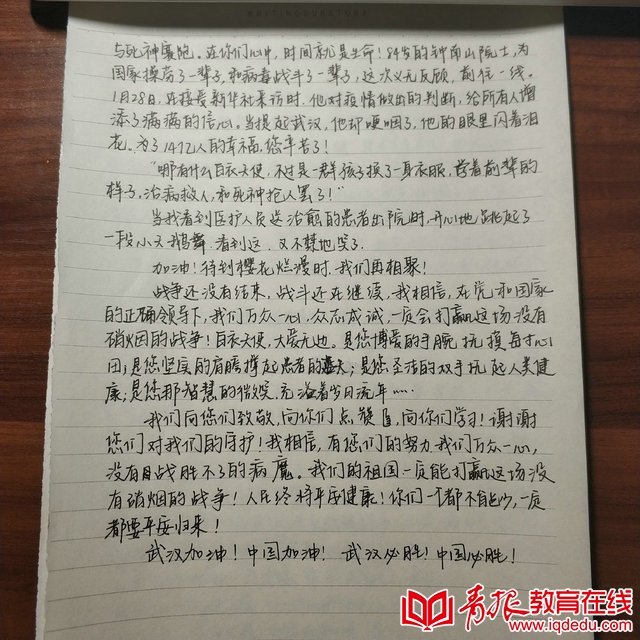 与死神赛跑。在你们心中,时间就是生命!84岁的钟南山院士,为
国家操劳了一辈子,和病毒战斗了一辈子,这次义无反顾,前往一线。
1月28日,在接受新华社采访时,他对疫情做出的判断,给所有人增
添了满满的信心。当提起武汉,他却哽咽了,他的眼里闪着泪
花。为了14亿人的幸福,您辛苦了!
“哪有什么白衣天使,不过是一群孩子换了一身衣服,学着前辈的
样子,治病救人,和死神抢人罢了!”
当我看到医护人员送治愈的患者出院时,开心地跳起了
一段小天鹅舞,看到这,又不禁地哭了。
加油!待到樱花烂漫时,我们再相聚!
战争还没有结束,战斗还在继续,我相信,在党和国家
的正确领导下,我们万众一心,众志成诚,一定会打赢这场没有
硝烟的战争!白衣天使,大爱无边。是您博爱的手腕,抚摸每寸心
田;是您坚实的肩膀撑起患者的蓝天;是您圣洁的双手托起人类健
康;是您那智慧的微笑,充溢着岁月流年……
我们向您们致敬,向你们点赞,向你们学习!谢谢
您们对我们的守护!我相信,有您们的努力,我们万众一心,
没有战胜不了的病魔。我们的祖国一定能打赢这场没
有硝烟的战争!人民终将平安健康!你们一个都不能少,一定
都要平安归来!
武汉加油!中国加油!武汉必胜!中国必胜!
WRITING
青报教育在线
www.iqdedu.com